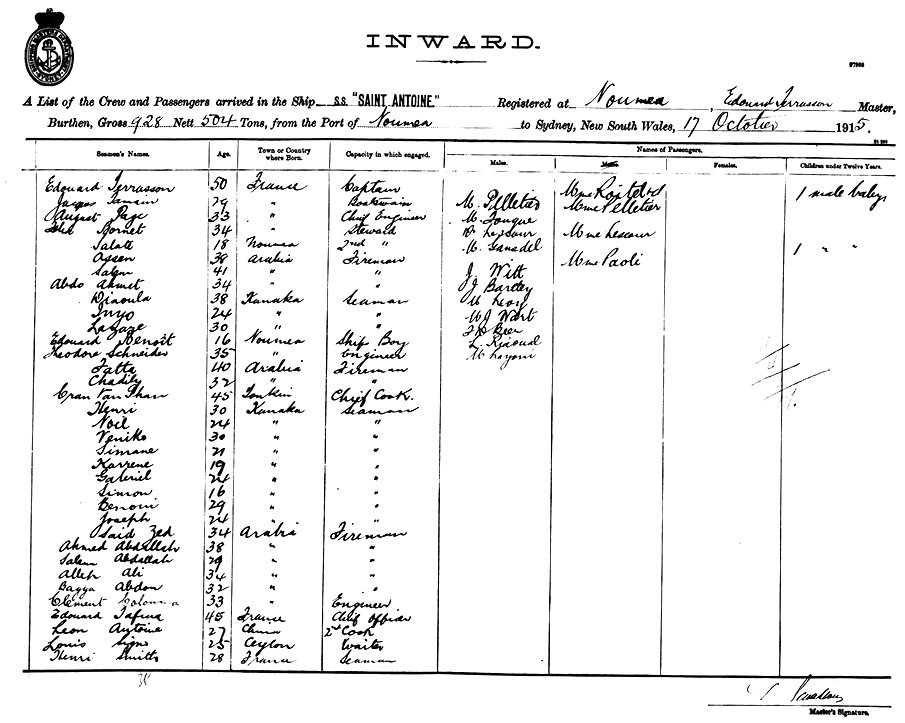 INWARD.
97963
A List of the Crew and Passengers arrived in the Ship S.S. "SAINT ANTOINE." Registered at Noumea, Edouard Terrasson Master,
Burthen, Gross 928 Nett 504 Tons, from the Port of Noumea to Sydney, New South Wales, 17 October 1915.
Names of Passengers.
Seamen's Names. Age. Town or Country where Born. Capacity in which engaged. Males. Females. Children under Twelve Years.
Edouard Terrasson 50 France Captain Mme 1 male baby
29 " Boatswain M. Pelletier Mme Pelletier
August Page 33 " Chief Engineer M.
Bornet 34 " Steward Mme Lescour
Salate 18 Noumea 2nd " M. 1 " "
Assen 38 Arabia Fireman Mme Paoli
Salem 41 " " J. Witt
Abdo Ahmet 34 " " J Bartley
Diaoula 38 Kanaka Seaman M Levy
Inyo 24 " " W J Wart
Lagaze 30 " " Beer
Edouard Benoit 16 Noumea Ship Boy L.
Theodore Schneider 35 " Engineer M
Fatta 40 Arabia Fireman
Chadily 32 " "
Cran Van Than 45 Tonkin Chief Cook.
Henri 30 Kanaka Seaman
Noil 24 " "
Veniko 30 " "
Simane 21 " "
Karrene 19 " "
Gabriel 24 " "
Simon 16 " "
Benoni 29 " "
Joseph 24 " "
Said Zed 34 Arabia Fireman
Ahmed Abdallah 38 " "
Salem Abdallah 29 " "
Alleh Ali 34 " "
Bagga Abdon 32 " "
Clement Colonna 33 " Engineer
Edouard Tafina 45 France Chief Officer
Leon Antoine 27 China 2nd Cook
Louis Signo 25 Ceylon Waiter
Henri Smitts 28 France Seaman
35
Master's Signature.